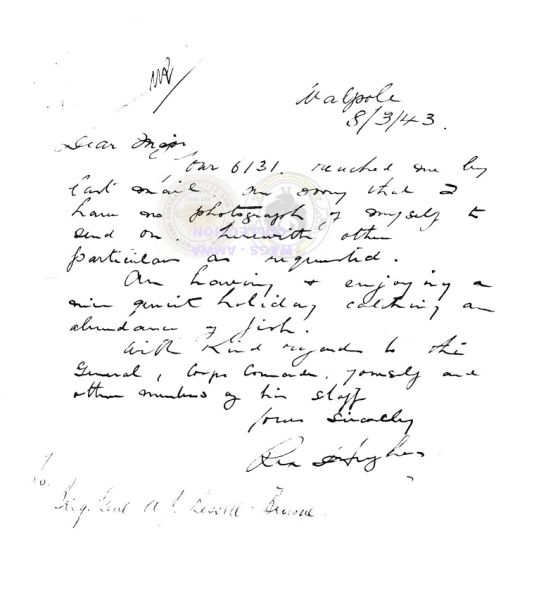 Walpole
8/3/43.
Dear Major
6131. reached me by
last mail. Am sorry that I
have no photograph of myself to
send on. Herewith other
particulars as requested.
Am having & enjoying a
nice quiet holiday catching an
abundance of fish.
With kind regards to the
General, Corps Comander, yourself and
other members of his staff
Yours sincerely
Hughes
To.
Brig. Genl A. J. - Browne.
WAGS - AMWA
COLLECTION